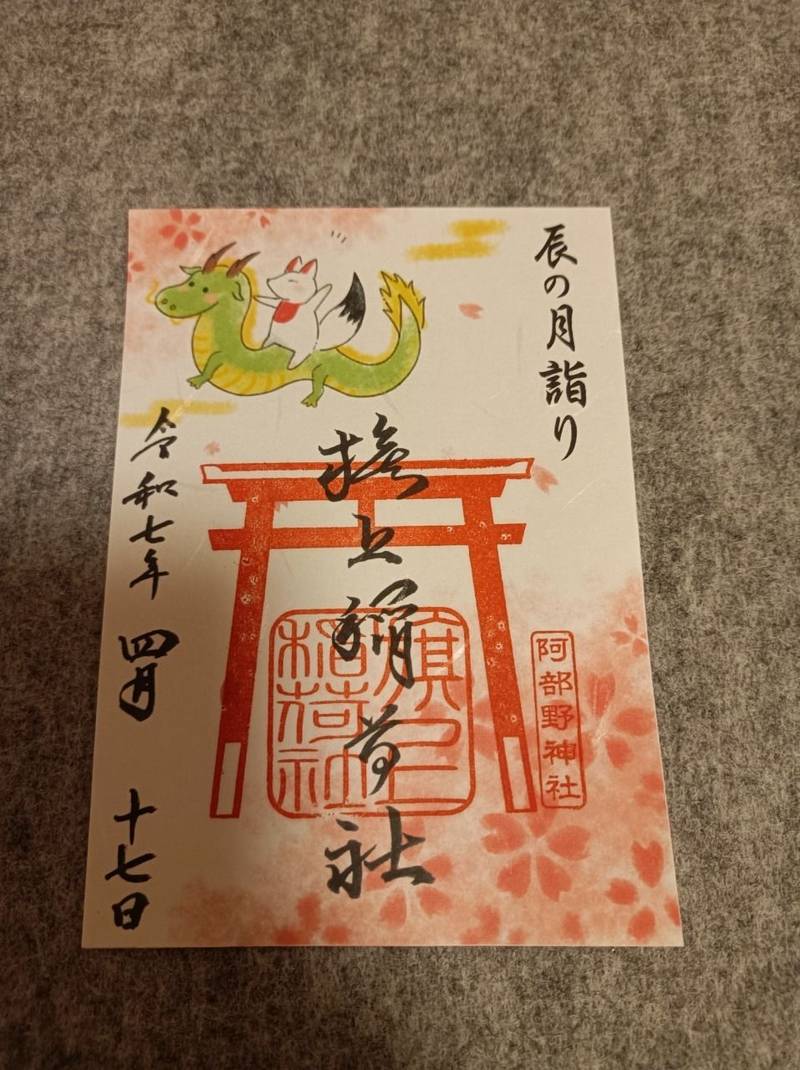 辰の月詣り
旗上稲荷社
旗上
稲荷社
阿部野神社
令和七年四月十七日